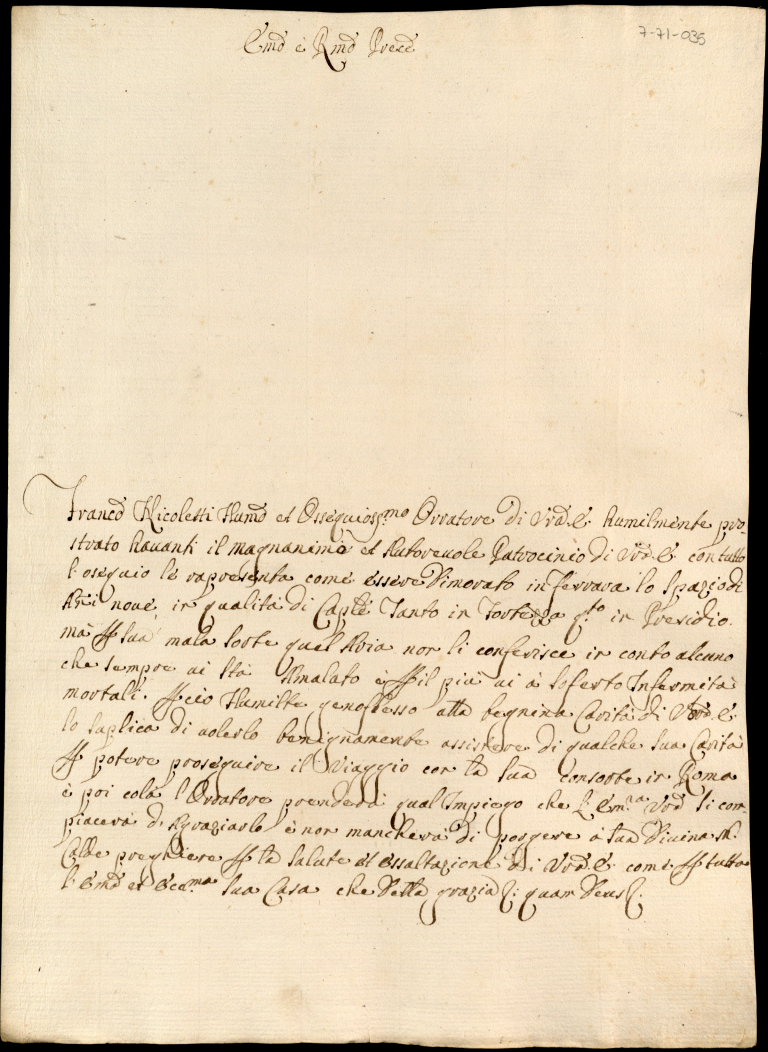 Emo è Rmo Prece
7-71-035
Franco Nicoletti Humo et Ossequioss.mo Orratore di Vra E. humilmente pro-
strato havanti il magnanimo et Autorevole Patrocinio di Vra E. con tutto
l'osequio le rapresenta come essere Dimorato in Ferrara lo Spazio di
Ani nove in qualità di Caple Tanto in Fortezza q.to in Presidio.
mà P sua mala sorte quel Aria non li conferisce in conto alcuno
che sempre vi stà Amalato è P il più vi à soferto Infermità
mortali. P ciò Humilte genoflesso alla begnina Carità di Vra E.
lo suplica di volerlo benignamente assistere di qualche sua Carità
P potere proseguire il Viaggio con la sua consorte in Roma
è poi colà l'Orratore prenderà qual Impiego che l'Em.za Vra si com-
piacerà d'Agraziarlo è non mancherà di porgere à sua Divina M.
Calde preghiere P la salute et essaltazione di Vra E. come P tutta
l'Ema et Ecc.ma sua Casa che Della grazia &. quam Deus &.